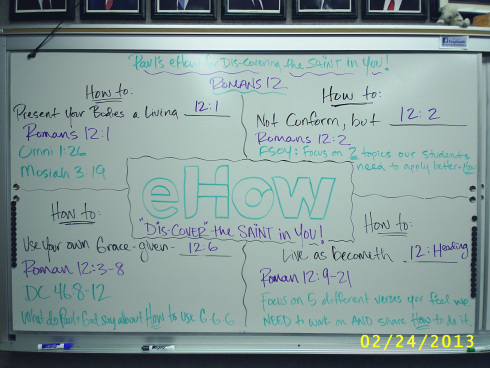 Paul's eHow for Dis-Covering the SAINT in You!
ROMANS 12
How to:
Present your Bodies a Living 12:1
Romans 12:1
Omni 1:26
Mosiah 3:19
How to:
Not Conform, but 12:2
Romans 12:2
FSOY: Focus on 2 topics our students
need to apply better-How
eHow
"DIS-COVER" the SAINT in You!
How to:
Use your own Grace-given- 12:6
Roman 12:3-8
DC 46:8-12
What do Paul + God say about How to use G.G.G
How to:
Live as becometh 12:Heading
Roman 12:9-21
Focus on 5 different verses you feel we
NEED to work on AND share How to do it.
02/24/2013